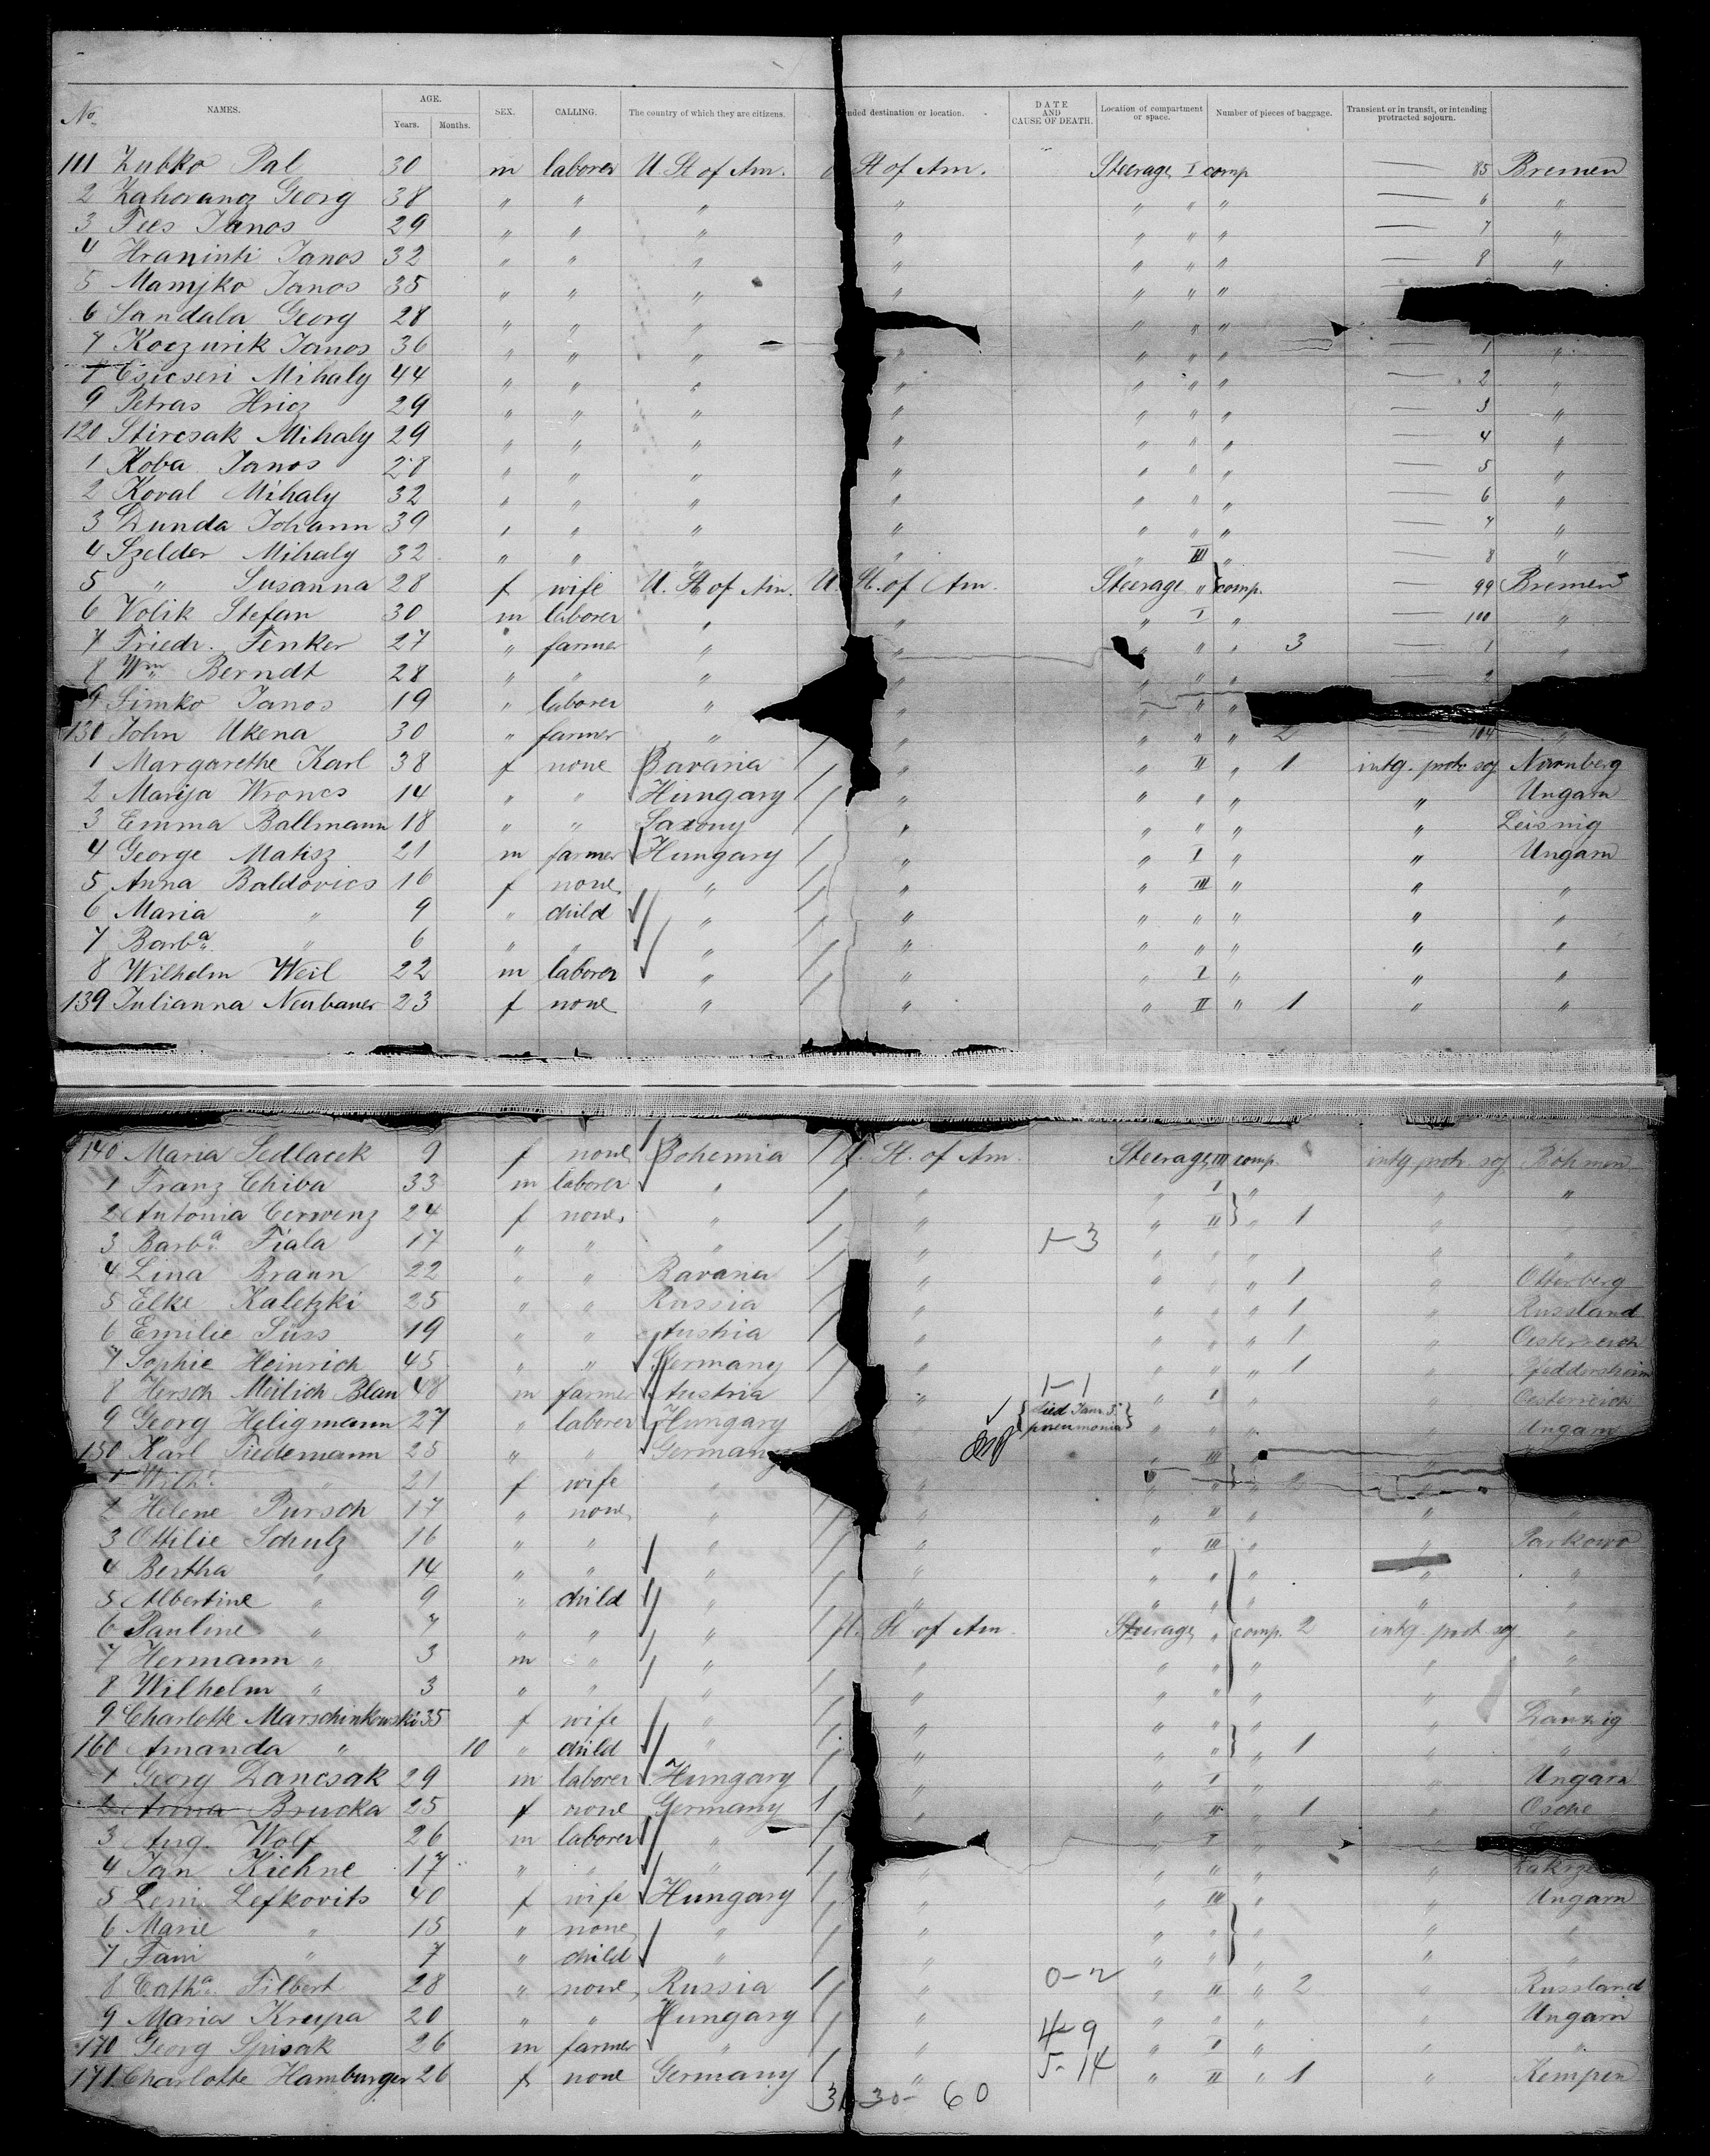 No. NAMES. AGE. Years. Months. SEX. CALLING. The country of which they are citizens. nded destination or location. DATE AND CAUSE OF DEATH. Location of compartment or space. Number of pieces of baggage. Transient or in transit, or intending protracted sojourn.
111 Zubko Pal 30 m laborer U. St of Am. St of Am. Steerage I comp — 85 Bremen
2 Zahorancz Georg 38 " " " " " " " — 6 "
3 Fees Janos 29 " " " " " " " — 7 "
4 Hraninti Janos 32 " " " " " " " — 8 "
5 Mamjko Janos 35 " " " " " " "
6 Sandala Georg 28 " " " " " "
7 Koczurik Janos 36 " " " " " " " — 1 "
8 Csicseri Mihaly 44 " " " " " " " — 2 "
9 Petras Hricz 29 " " " " " " " — 3 "
120 Stircsak Mihaly 29 " " " " " " " — 4 "
1 Koba Janos 28 " " " " " " " — 5 "
2 Koval Mihaly 32 " " " " " " " — 6 "
3 Dunda Johann 39 " " " " " " " — 7 "
4 Szelder Mihaly 32 " " " " " III " — 8 "
5 " Susanna 28 f wife U. St of Am. U. St. of Am. Steerage " comp. — 99 Bremen
6 Volik Stefan 30 m laborer " " " I " — 100 "
7 Friedr. Fenker 27 " farmer " " " " " 3 — 1 "
8 Wm Berndt 28 " " " " " " " — 2
9 Simko Janos 19 " laborer " " " " "
130 John Ukena 30 " farmer " " " " " 2 104 "
1 Margarethe Karl 38 f none Bavaria " " II " 1 intg. protr soj Nürnberg
2 Marija Wroncs 14 " " Hungary " " " " " Ungarn
3 Emma Ballmann 18 " " Saxony " " " " " Leisnig
4 George Matisz 21 m farmer Hungary " " I " " Ungarn
5 Anna Baldovics 16 f none " " " III " " "
6 Maria " 9 " child " " " " " " "
7 Barba. " 6 " " " " " " " " "
8 Wilhelm Weil 22 m laborer " " " I " " "
139 Julianna Neubauer 23 f none " " " II " 1 " "
140 Maria Sedlacek 9 f none Bohemia U. St. of Am. Steerage III comp. intg protr soj Böhmen
1 Franz Chiba 33 m laborer " " " I " " "
2 Antonia Cerwenz 24 f none " " " II " 1 "
3 Barba. Fiala 17 " " " " 1-3 " " " " "
4 Lina Braun 22 " " Bavaria " " " " 1 " Otterberg
5 Elke Kaletzki 25 " " Russia " " " " 1 " Russland
6 Emilie Süss 19 " " Austria " " " " 1 " Oesterreich
7 Sophie Heinrich 45 " " Germany " " " " 1 " Pfeddersheim
8 Hersch Meilich Blau 48 m farmer Austria " 1-1 " I " " Oesterreich
9 Georg Heligmann 27 " laborer Hungary died Janr. 5. pneumonia " " " Ungarn
150 Karl Tiedemann 25 " " Germany " III "
1 Wilhe. " 21 f wife " " " " 2
2 Helene Pursch 17 " none " " " II " " "
3 Ottilie Schulz 16 " " " " " III " " Parkowo
4 Bertha " 14 " " " " " " " " "
5 Albertine " 9 " child " " " " " " "
6 Pauline " 7 " " " U. St of Am. Steerage " comp. 2 intg. prot. soj "
7 Hermann " 3 m " " " " " " " "
8 Wilhelm " 3 " " " " " " " " "
9 Charlotte Marschinkowski 35 f wife " " " " " " Danzig
160 Amanda " 10 " child " " " " " 1 " "
1 Georg Dancsak 29 m laborer Hungary " " I " " Ungarn
2 Anna Brucka 25 f none Germany " " III " 1 " Osche
3 Aug. Wolf 26 m laborer " " I "
4 Jan Kiehne 17 " " " " " " " "
5 Leni Lefkovits 40 f wife Hungary " " III " " Ungarn
6 Marie " 15 " none " " " " " " "
7 Fani " 7 " child " " " " " " "
8 Catha. Filbert 28 " none Russia " 0-2 " II " 2 " Russland
9 Maria Krupa 20 " " Hungary " 4-9 " " " " Ungarn
170 Georg Spisak 26 m farmer " " " I " " "
171 Charlotte Hamburger 26 f none Germany " 5-14 " II " 1 " Kempen
30- 60